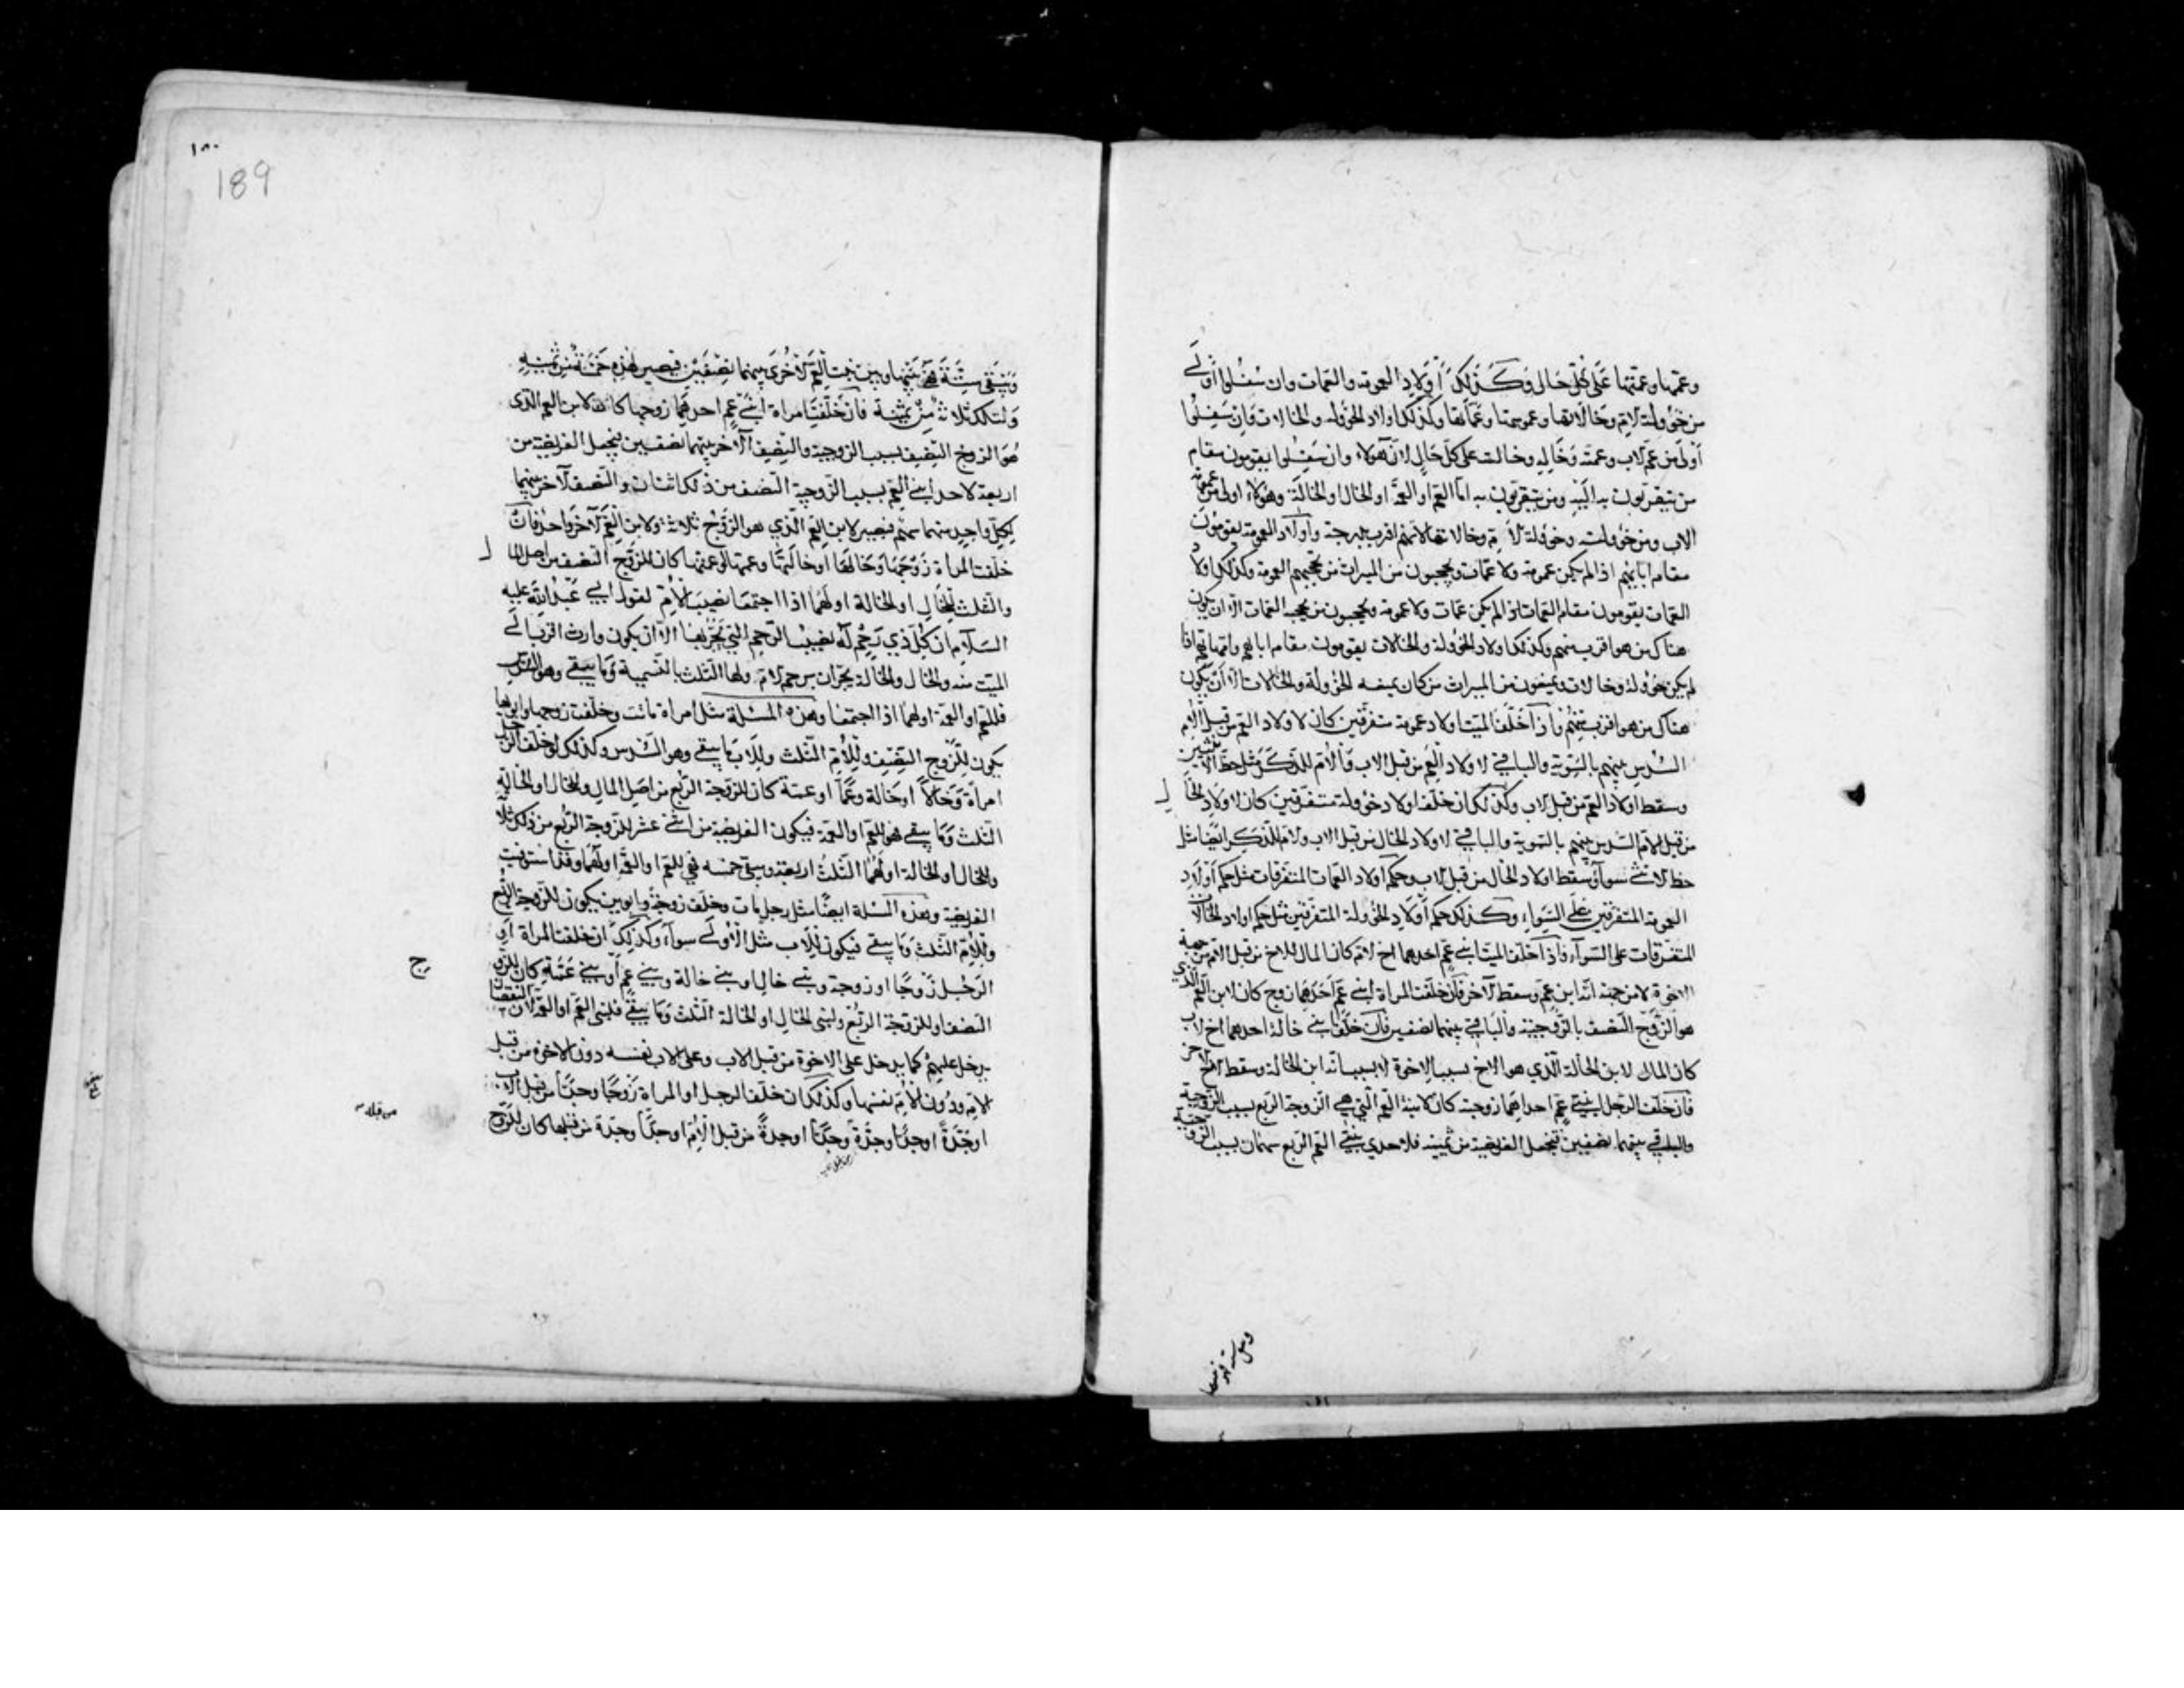 وعمّها وعمّتها عَلى كُلّ حَال وَكَذلكَ اَوْلادِ العمومة والعمّات وان سَفُلوا أَولى
من خؤولة الام وخالاتها وعمومتها وعمّاتها وكذلك اولاد الخؤلة والخالات وَان سَفِلُوا
أولى من عمّ الاب وعمته وَخَاله وخالته على كلّ حَالٍ لانّ هؤلاء وان سَفِلُوا يقومون مقام
من يتقربون به اليه ومن يتقربون به امّا العمّ او العمّة او الخال او الخالَة وهؤلاء اولى من عمومة
الاب ومن خؤولته وخؤلة الاُم وخالاتها لانهم اقرب بدرجة وأولاد العمومة يقومُونَ
مقام ابائهم اذا لم يكن عمومة ولا عمّات ويحجبون من الميراث من يحجبهم العمومة وكذلك اولاد
العمّات يقومون مقام العمّات اذا لم يكن عمّات ولا عمومة ويحجبون من يحجبه العمّات الّا ان يكون
هناك من هو اقرب منهم وكذلك اولاد الخؤولة والخالات يقومون مقام ابائهم وامّهاتهم اذا
لم يكن خؤولة وخالات ويمنعون من الميراث من كان يمنعه الخؤولة والخالات الّا أن يكون
هناك من هو اقرب منهم وَاذا خَلّف الميّت اولاد عمومة متفرّقين كان لاولاد العم من قبل الاُم
السُدس بينهم بالسَوية والباقي لاولاد العَم من قبل الاب والاُم للذكَر مثل حظ الانثيين
وسقط اولاد العم من قبل الاب وكذلك ان خلّف اولاد خؤولة متفرقين كان لاولاد الخال
من قبل الام السّدس بينهم بالسّوية والباقي لاولاد الخال من قبل الاب والام للذكر ايضًا مثل
حظ الانثى سوآء وسقط اولاد الخال من قبل الاب وحكم اولاد العمّات المتفرّقات مثل حكم أولاد
العمومة المتفرّقين عَلى السَواء وكذلك حكم أولاد الخؤولة المتفرّقين مثل حكم اولاد الخالات
المتفرقات على السّوآء فاذا خلّف الميّت ابني عمّ احدهما اخ لام كان المال للاخ من قبل الام من جهة
الاخوة لا من جهة انّه ابن عمّ وسقط الآخر فان خلّفت المراة ابني عمّ احَدهما زوج كان لابن العمّ الذي
هو الزّوج النّصف بالزّوجيّة والبَاقي بينهما نصفين فان خلّفا بني خالة احدهما اخ لاب
كان المال لابن الخالة الّذي هو الاخ بسبب الاخوة لا بسبب انّه ابن الخالة وسقط الآخر
فان خلّف الرجل ابنتي عمّ احداهما زوجته كان لابنة العمّ الّتي هي الزوجة الرّبع بسبب الزوجية
والباقي بينهما نصفين فتجعل الفريضة من ثمنية فلاحدى بنتي العمّ الرّبع سهمان بسبب الزوجيّة
189
وَيبقى سِتّة هي بَينها وبين بنت العَمّ الأخرى بينهما نِصْفَيْن فيصير لهذه خَمسَةٌ من ثمنية
وَلتلك ثلاثة من ثمنية فان خَلّفَت امراة ابنَى عمٍ احدهما زوجها كان لابن العم الّذى
هُوَ الزوج النّصف بسبب الزوجية والنّصف الآخر بينهما نصفين يجعل الفريضة من
اربعة لاحد ابني العم بسبب الزّوجية النّصف من ذلك اثنان والنّصف الآخر بينهما
لكلّ واحدٍ منهما سهم فيصير لابن العم الّذي هو الزّوج ثلاثة ولابن العمّ الآخر واحد فان
خلّفت المراة زَوْجَها وَخَالَها اوخَالَتها وعمها او عمتها كان للزّوج النّصف من اصل المال
والثلث للخال او الخالة او لهما اذا اجتمعا نصيب الاُمّ لقول ابي عَبْدالله عليه
السّلام ان كلّ ذي رَحِم له نصيب الرحم التي يَجُرّ بها الّا ان يكون وارث اقرب الى
الميّت منه والخال والخالة يجرّان برحم الام ولها الثّلث بالتسمية وَمَا يبقى وهو السّدس
فللعمّ او العمّة او لهما اذا اجتمعا وهذه المسئلة مثل امراة ماتت وخلّفت زوجها وابويها
يكون للزّوج النّصف وللأم الثّلث وللاب ما يبقى وهو السّدس وكذلك لو خلّف الرّجل
امراة وَخَالاً اوخالة وعَمّاً او عمّة كان للزوجة الرّبع من اصل المالِ وللخال او الخالة
الثلث وَمَا يبقى فهو للعمّ او العمّة فيكون الفريضة من اثنى عشر للزّوجة الرّبع من ذلك ثلاثة
وللخال او الخالة او لهما الثّلث اربعة ويبقى خمسه فهي للعمّ او العمّة او لهما وقد استوفيت
الفريضة وهذه المسئلة ايضًا مثل رجل مات وخلّف زوجةً وابوين يكون للزّوجة الرّبع
وللاُم الثّلث وَمَا يبقى فيكون للاب مثل الاُولى سوآء وَكذلك ان خلّفت المراة او
الرّجُل زَوجًا او زوجة وبني خالٍ او بني خالة وبني عم او بني عَمّةٍ كان للزّوج
النصف او للزوجة الربع ولبني الخال او الخالة الثلث وَمَا يبقى فلبني العمّ او العمّة لان النقصان
يدخل عليهم كما يدخل على الاخوة من قبل الاب وعلى الاب نفسه دون الاخوة من قبل
الام ودُون الاُم نفسها وكذلك ان خلّف الرجل او المراة زَوْجًا وجدًّا من قبل الاب
اوجَدّةً اوجدًّا وجدّةً وجدًّا اوجدةً من قبل الاُم اوجدًّا وجدّة من قبلها كان للزّوج
من قبله